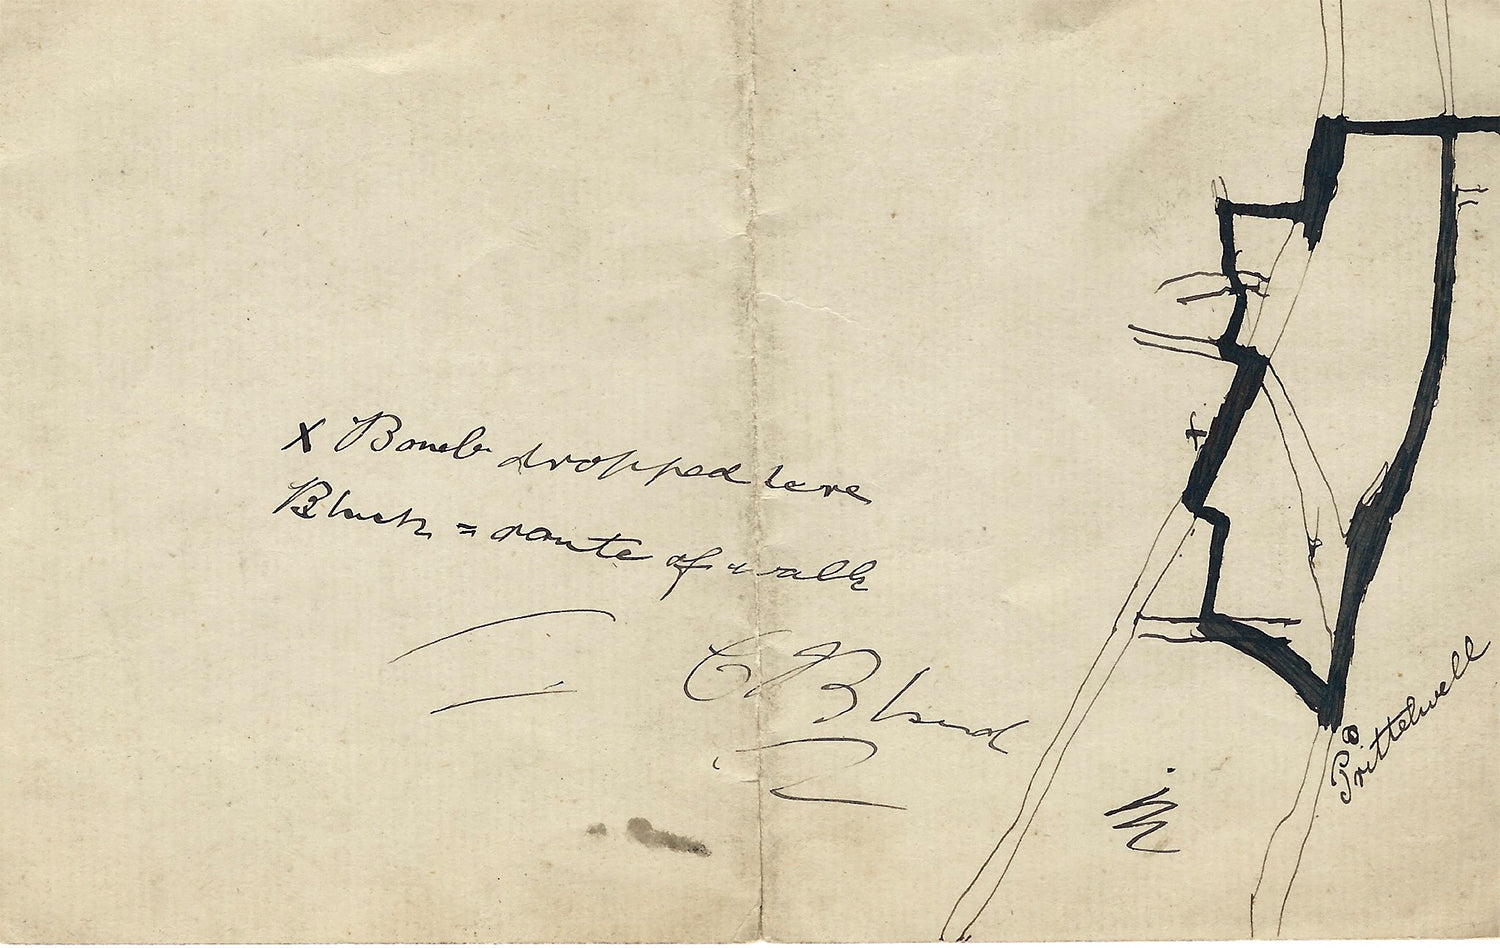 x Bomb dropped here
Black = route of walk
Prittelwell